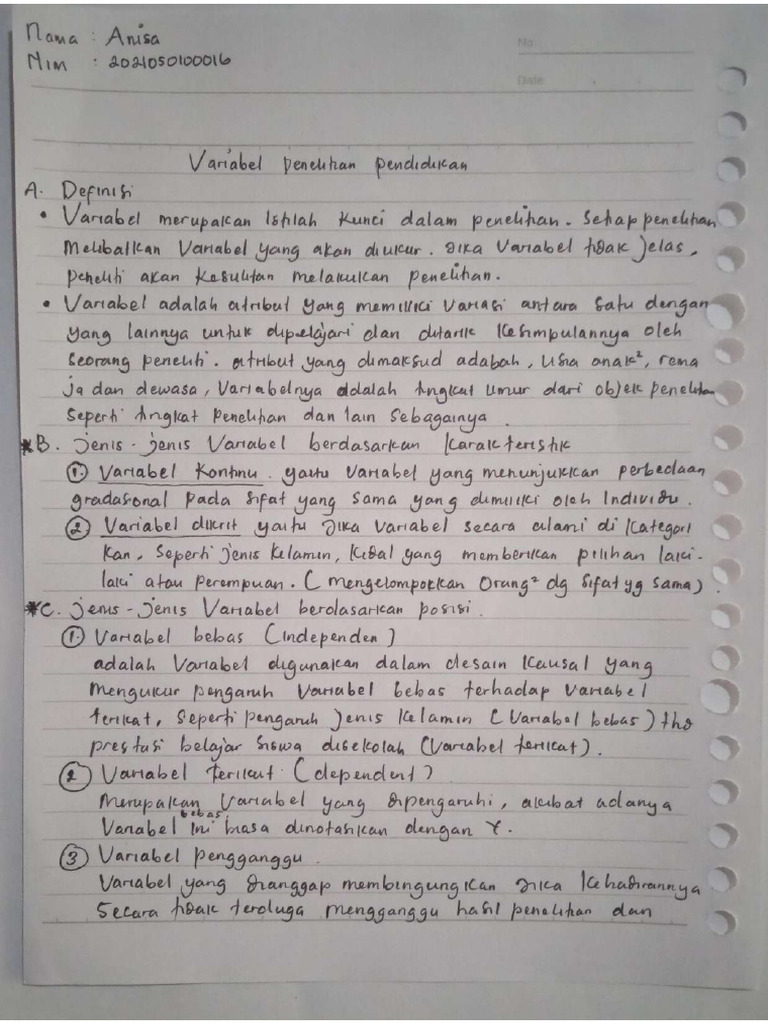 Nama : Anisa
Nim : 2021050100016
No
Date
Variabel penelitian pendidikan
A. Definisi
• Variabel merupakan Istilah Kunci dalam penelitian. Setiap penelitian
Melibatkan Variabel yang akan diukur. Jika Variabel tidak jelas,
peneliti akan Kesulitan melakukan penelitian.
• Variabel adalah atribut yang memiliki Variasi antara satu dengan
yang lainnya untuk dipelajari dan ditarik Kesimpulannya oleh
seorang peneliti. atribut yang dimaksud adabah, Usia anak², rema
ja dan dewasa, Variabelnya adalah tingkat umur dari objek penelitian
seperti tingkat penelitian dan lain sebagainya.
*B. Jenis-jenis Variabel berdasarkan Karakteristik
①. Variabel Kontinu. yaitu Variabel yang menunjukkan perbedaan
gradasional pada sifat yang sama yang dimiliki oleh Individu.
② Variabel dikrit yaitu Jika Variabel secara alami di Kategori
kan, seperti jenis kelamin, yang memberikan pilihan laki-
laki atau perempuan. (mengelompokkan Orang² dg sifat yg sama)
*C. Jenis-jenis Variabel berdasarkan posisi.
①. Variabel bebas (Independen)
adalah Variabel digunakan dalam desain Kausal yang
Mengukur pengaruh Variabel bebas terhadap Variabel
terikat, seperti pengaruh Jenis Kelamin (Variabel bebas) thd
prestasi belajar siswa disekolah (Variabel terikat).
② Variabel terikat (dependent)
Merupakan Variabel yang dipengaruhi, akibat adanya
Variabel bebas ini biasa dinotasikan dengan Y.
③ Variabel pengganggu.
Variabel yang dianggap membingungkan Jika Kehadirannya
secara tidak terduga mengganggu hasil penelitian dan